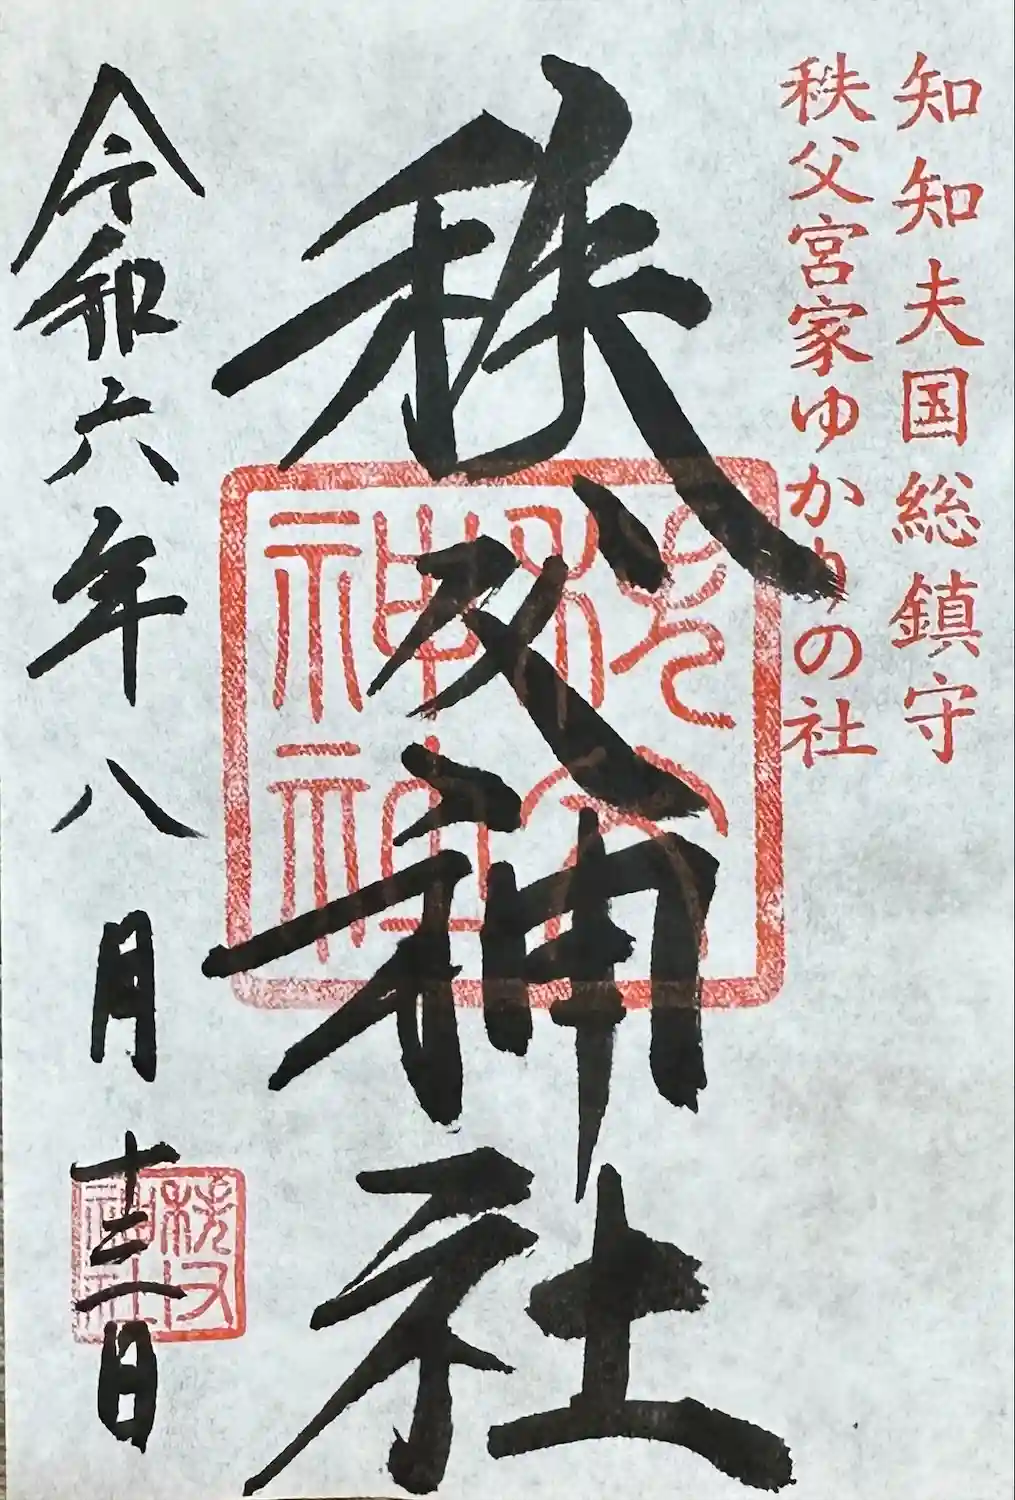 知知夫国総鎮守
秩父宮家ゆかりの社
秩父神社
令和六年八月十三日
秩父
神社
秩父
神社